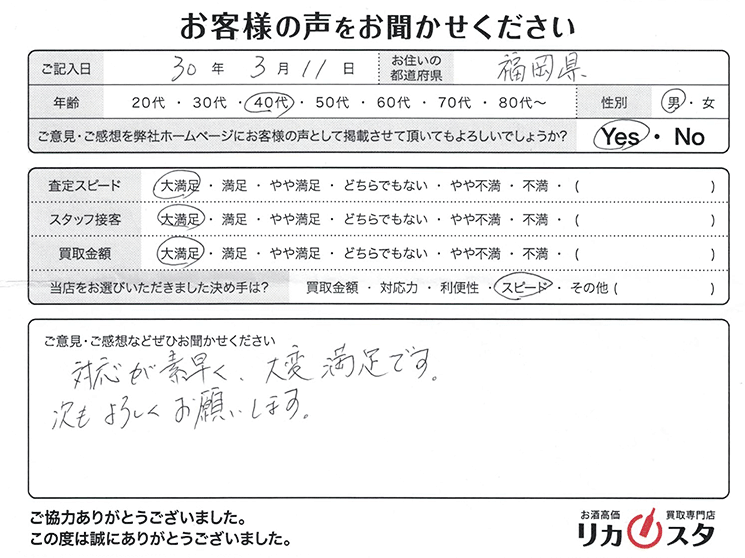 お客様の声をお聞かせください
ご記入日 30年 3月 11日 お住いの都道府県 福岡県
年齢 20代 ・ 30代 ・ 40代 ・ 50代 ・ 60代 ・ 70代 ・ 80代～ 性別 男 ・ 女
ご意見・ご感想を弊社ホームページにお客様の声として掲載させて頂いてもよろしいでしょうか? Yes ・ No
査定スピード 大満足 ・ 満足 ・ やや満足 ・ どちらでもない ・ やや不満 ・ 不満 ・ ( )
スタッフ接客 大満足 ・ 満足 ・ やや満足 ・ どちらでもない ・ やや不満 ・ 不満 ・ ( )
買取金額 大満足 ・ 満足 ・ やや満足 ・ どちらでもない ・ やや不満 ・ 不満 ・ ( )
当店をお選びいただきました決め手は? 買取金額 ・ 対応力 ・ 利便性 ・ スピード ・ その他 ( )
ご意見・ご感想などぜひお聞かせください
対応が素早く、大変満足です。
次もよろしくお願いします。
ご協力ありがとうございました。
この度は誠にありがとうございました。
お酒高価 買取専門店
リカスタ